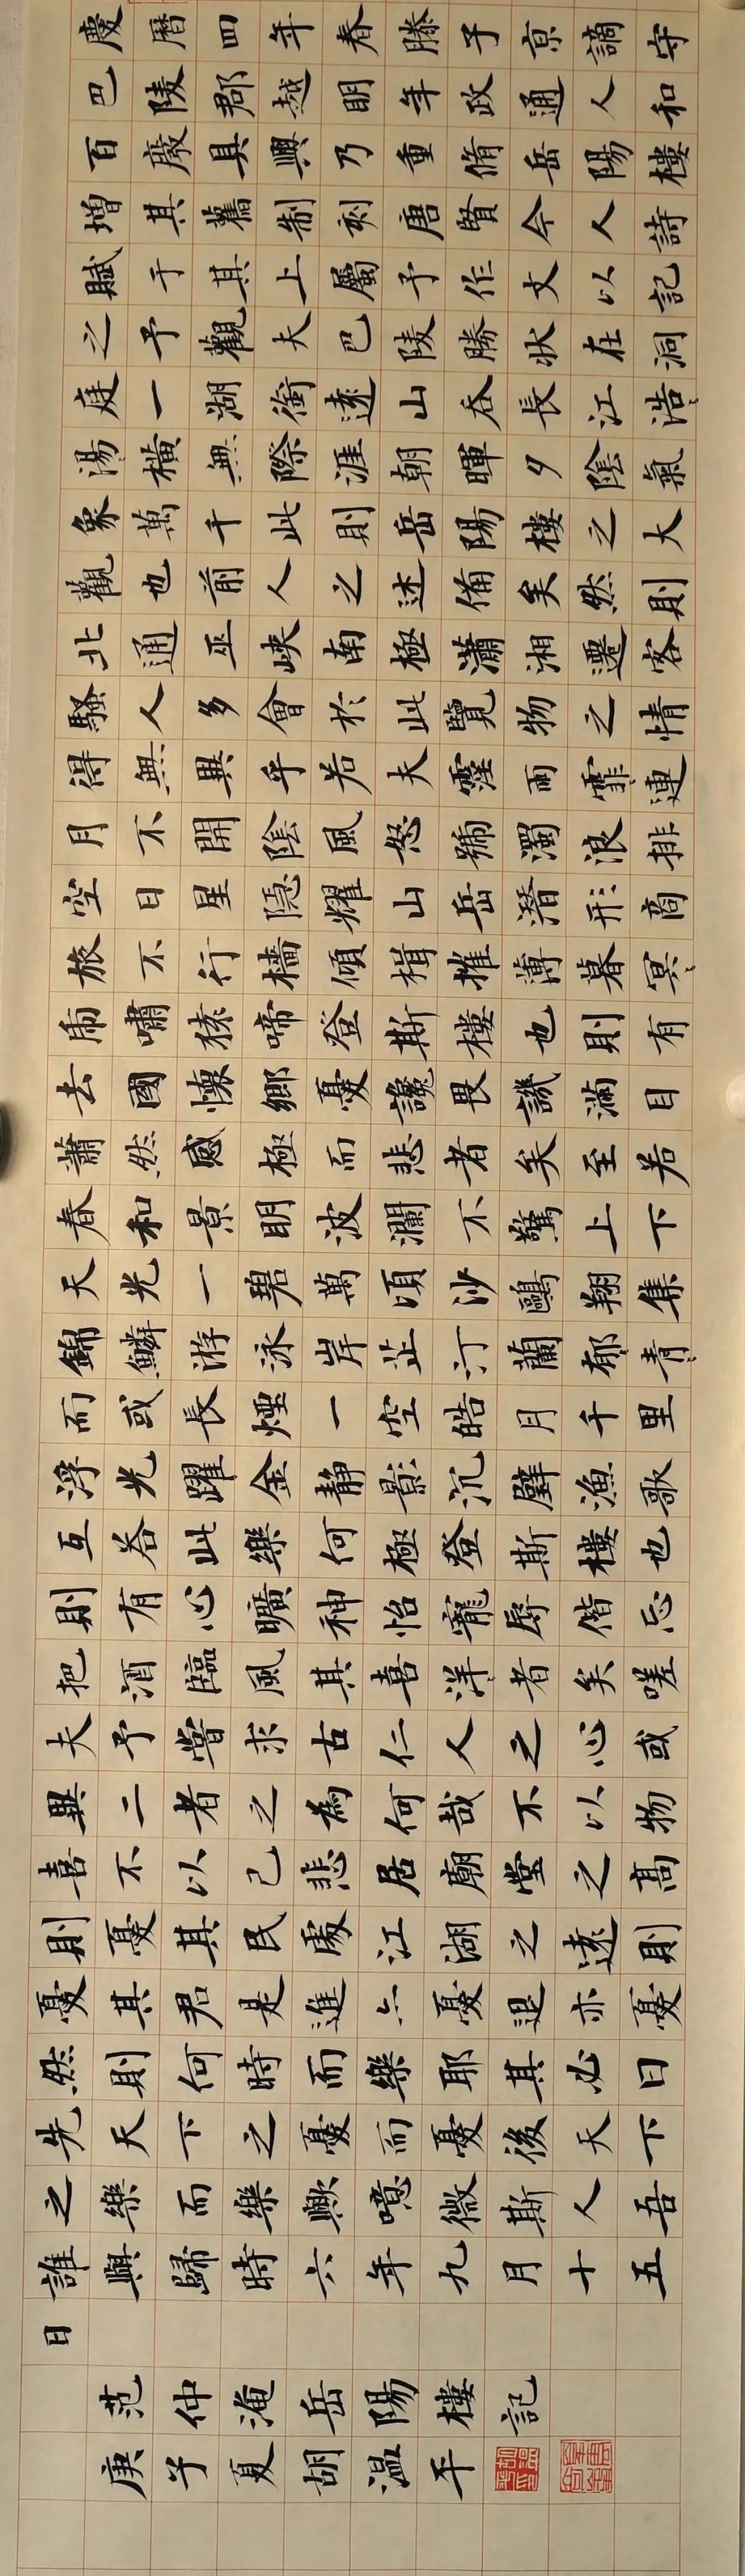 慶曆四年春滕子京謫守
巴陵郡越明年政通人和
百廢具興乃重脩岳陽樓
增其舊制刻唐賢今人詩
賦于其上屬予作文以記
之予觀夫巴陵勝狀在洞
庭一湖銜遠山吞長江浩〻
湯〻橫無際涯朝暉夕陰氣
象萬千此則岳陽樓之大
觀也前人之述備矣然則
北通巫峽南極瀟湘遷客
騷人多會於此覽物之情
得無異乎若夫霪雨霏〻連
月不開陰風怒號濁浪排
空日星隱耀山岳潛形商
旅不行檣傾楫摧薄暮冥〻
虎嘯猿啼登斯樓也則有
去國懷鄉憂讒畏譏滿目
蕭然感極而悲者矣至若
春和景明波瀾不驚上下
天光一碧萬頃沙鷗翔集
錦鱗游泳岸芷汀蘭郁〻青〻
而或長煙一空皓月千里
浮光躍金静影沉璧漁歌
互答此樂何極登斯樓也
則有心曠神怡寵辱偕忘
把酒臨風其喜洋〻者矣嗟
夫予嘗求古仁人之心或
異二者之為何哉不以物
喜不以己悲居廟堂之高
則憂其民處江湖之遠則
憂其君是進亦憂退亦憂
然則何時而樂耶其必曰
先天下之憂而憂後天下
之樂而樂歟噫微斯人吾
誰與歸時六年九月十五
日
范仲淹岳陽樓記
庚子夏胡温平